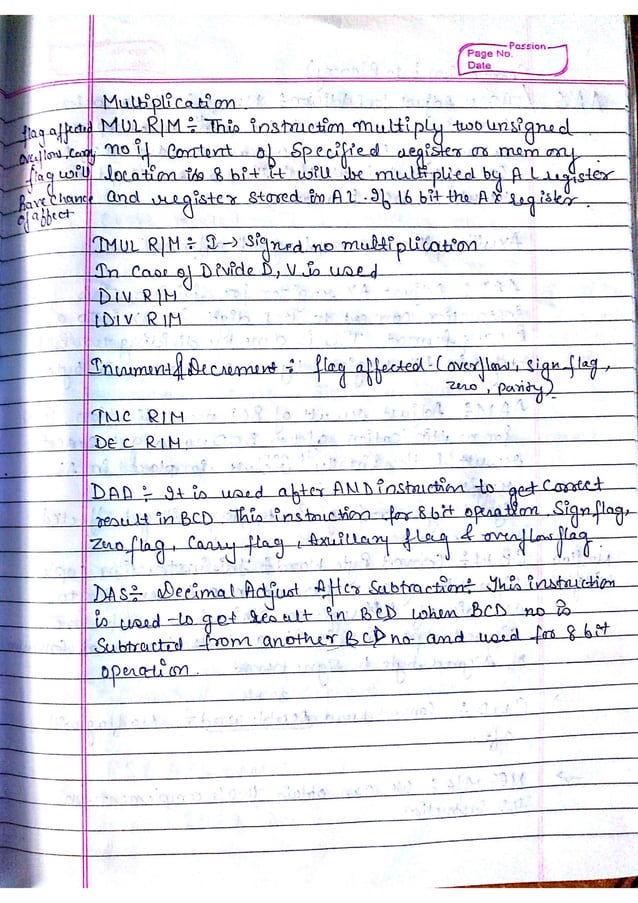 Passion
Page No.
Date
Multiplication
MUL R/M ÷ This instruction multiply two unsigned
no if content of specified register or memory
location is 8 bit it will be multiplied by AL register
and register stored in AL. If 16 bit the AX register.
flag affected
overflow, carry
flag will
Have Chance
of affect
IMUL R/M ÷ I → Signed no multiplication
In case of Divide D, V is used
DIV R/M
IDIV R/M
Increment & Decrement ÷ flag affected (overflow, sign flag,
zero, parity)
INC R/M
DEC R/M
DAA ÷ It is used after AND instruction to get correct
result in BCD. This instruction for 8 bit operation Sign flag,
Zero flag, Carry flag, Axuillary flag & overflow flag
DAS ÷ Decimal Adjust After Subtraction ÷ This instruction
is used to get result in BCD when BCD no is
Subtracted from another BCD no and used for 8 bit
operation.